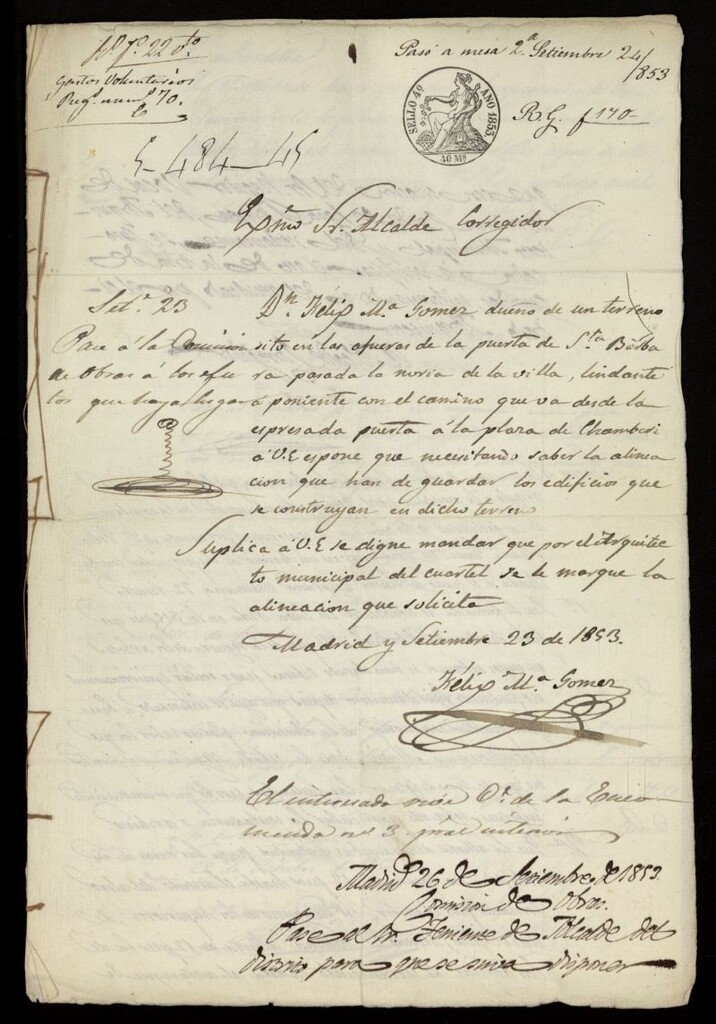 Gastos Voluntarios
Reg.º num.º 70.
Pasó a mesa 2.ª Setiembre 24/853
SELLO 4º AÑO 1853.
40 Ms
R. G. f 170
5-484-45
Exmo Sr. Alcalde Corregidor
Set.e 23
Pase á la Comision
de Obras á los efec
tos que haya lugar
Dn. Félix M.a Gomez dueño de un terreno
sito en las afueras de la puerta de S.ta Bárba
ra pasada la noria de la villa, lindante
á poniente con el camino que va desde la
espresada puerta á la plaza de Chamberi
á V.E espone que necesitando saber la alinea
cion que han de guardar los edificios que
se construyan en dicho terreno
Suplica á V.E se digne mandar que por el Arquitec
to municipal del cuartel se le marque la
alineacion que solicita
Madrid y Setiembre 23 de 1853.
Félix M.a Gomez
El interesado vive C.e de la Enco
mienda nº 3. pral interior
Madrid 26 de Setiembre de 1853.
Comision de Obras.
Pase al Sr. Teniente de Alcalde del
distrito para que se sirva disponer